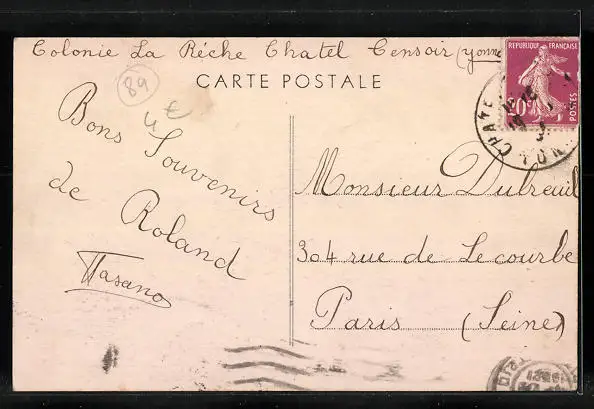 Colonie La Rêche Chatel Censoir (Yonne
REPUBLIQUE FRANÇAISE
20c
POSTES
89
4 €
CARTE POSTALE
Bons Souvenirs
de Roland
Tasano
Monsieur Dubreuil
304 rue de Lecourbe
Paris (Seine)